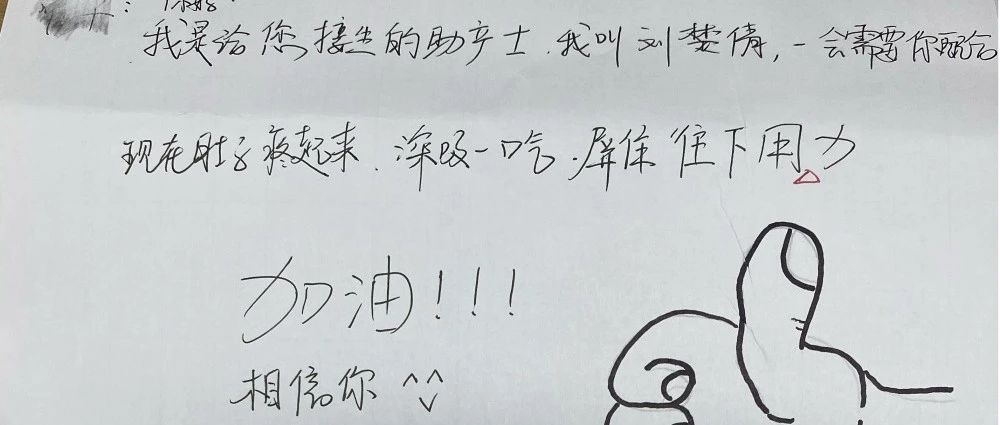 ：你好！
我是给您接生的助产士.我叫刘婪倩,一会需要你配合
现在肚子疼起来.深吸一口气.屏住往下用力
加油!!!
相信你 ^^